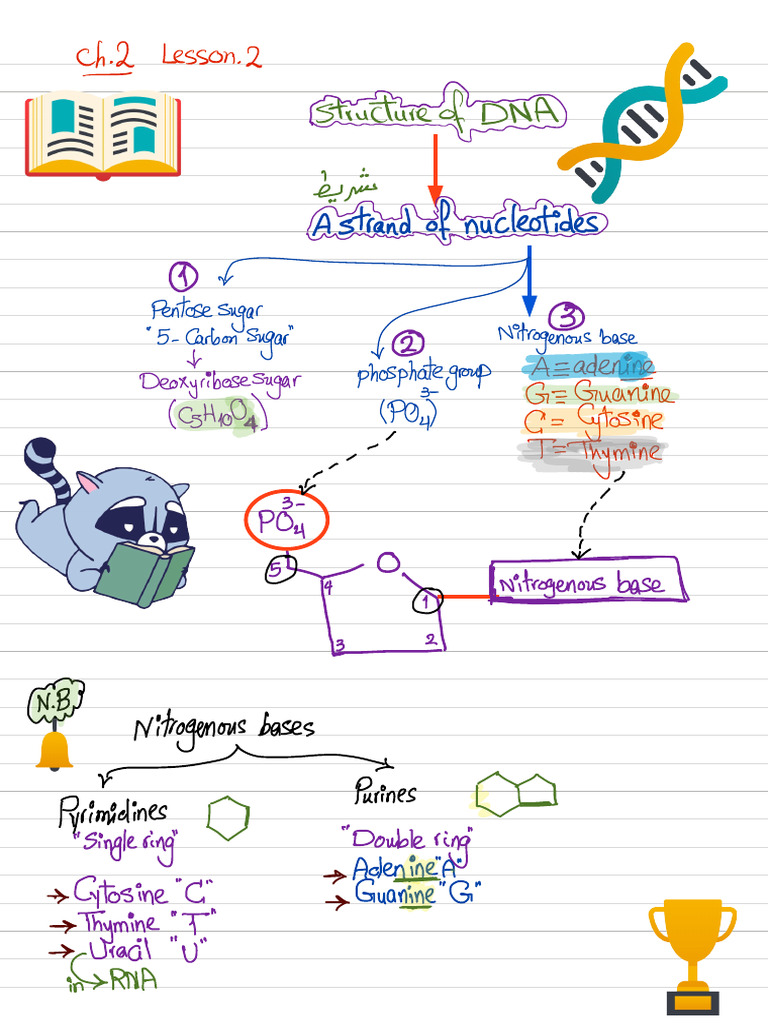 Ch.2 Lesson.2
Structure of DNA
شريط
A strand of nucleotides
1
Pentose sugar
"5-Carbon Sugar"
Deoxyribose sugar
(C5H10O4)
2
phosphate group
(PO4)3-
3
Nitrogenous base
A = adenine
G = Guanine
C = Cytosine
T = Thymine
PO4 3-
5
4
O
1
3
2
Nitrogenous base
N.B
Nitrogenous bases
Pyrimidines
"Single ring"
Cytosine "C"
Thymine "T"
Uracil "U"
in → RNA
Purines
"Double ring"
Adenine "A"
Guanine "G"